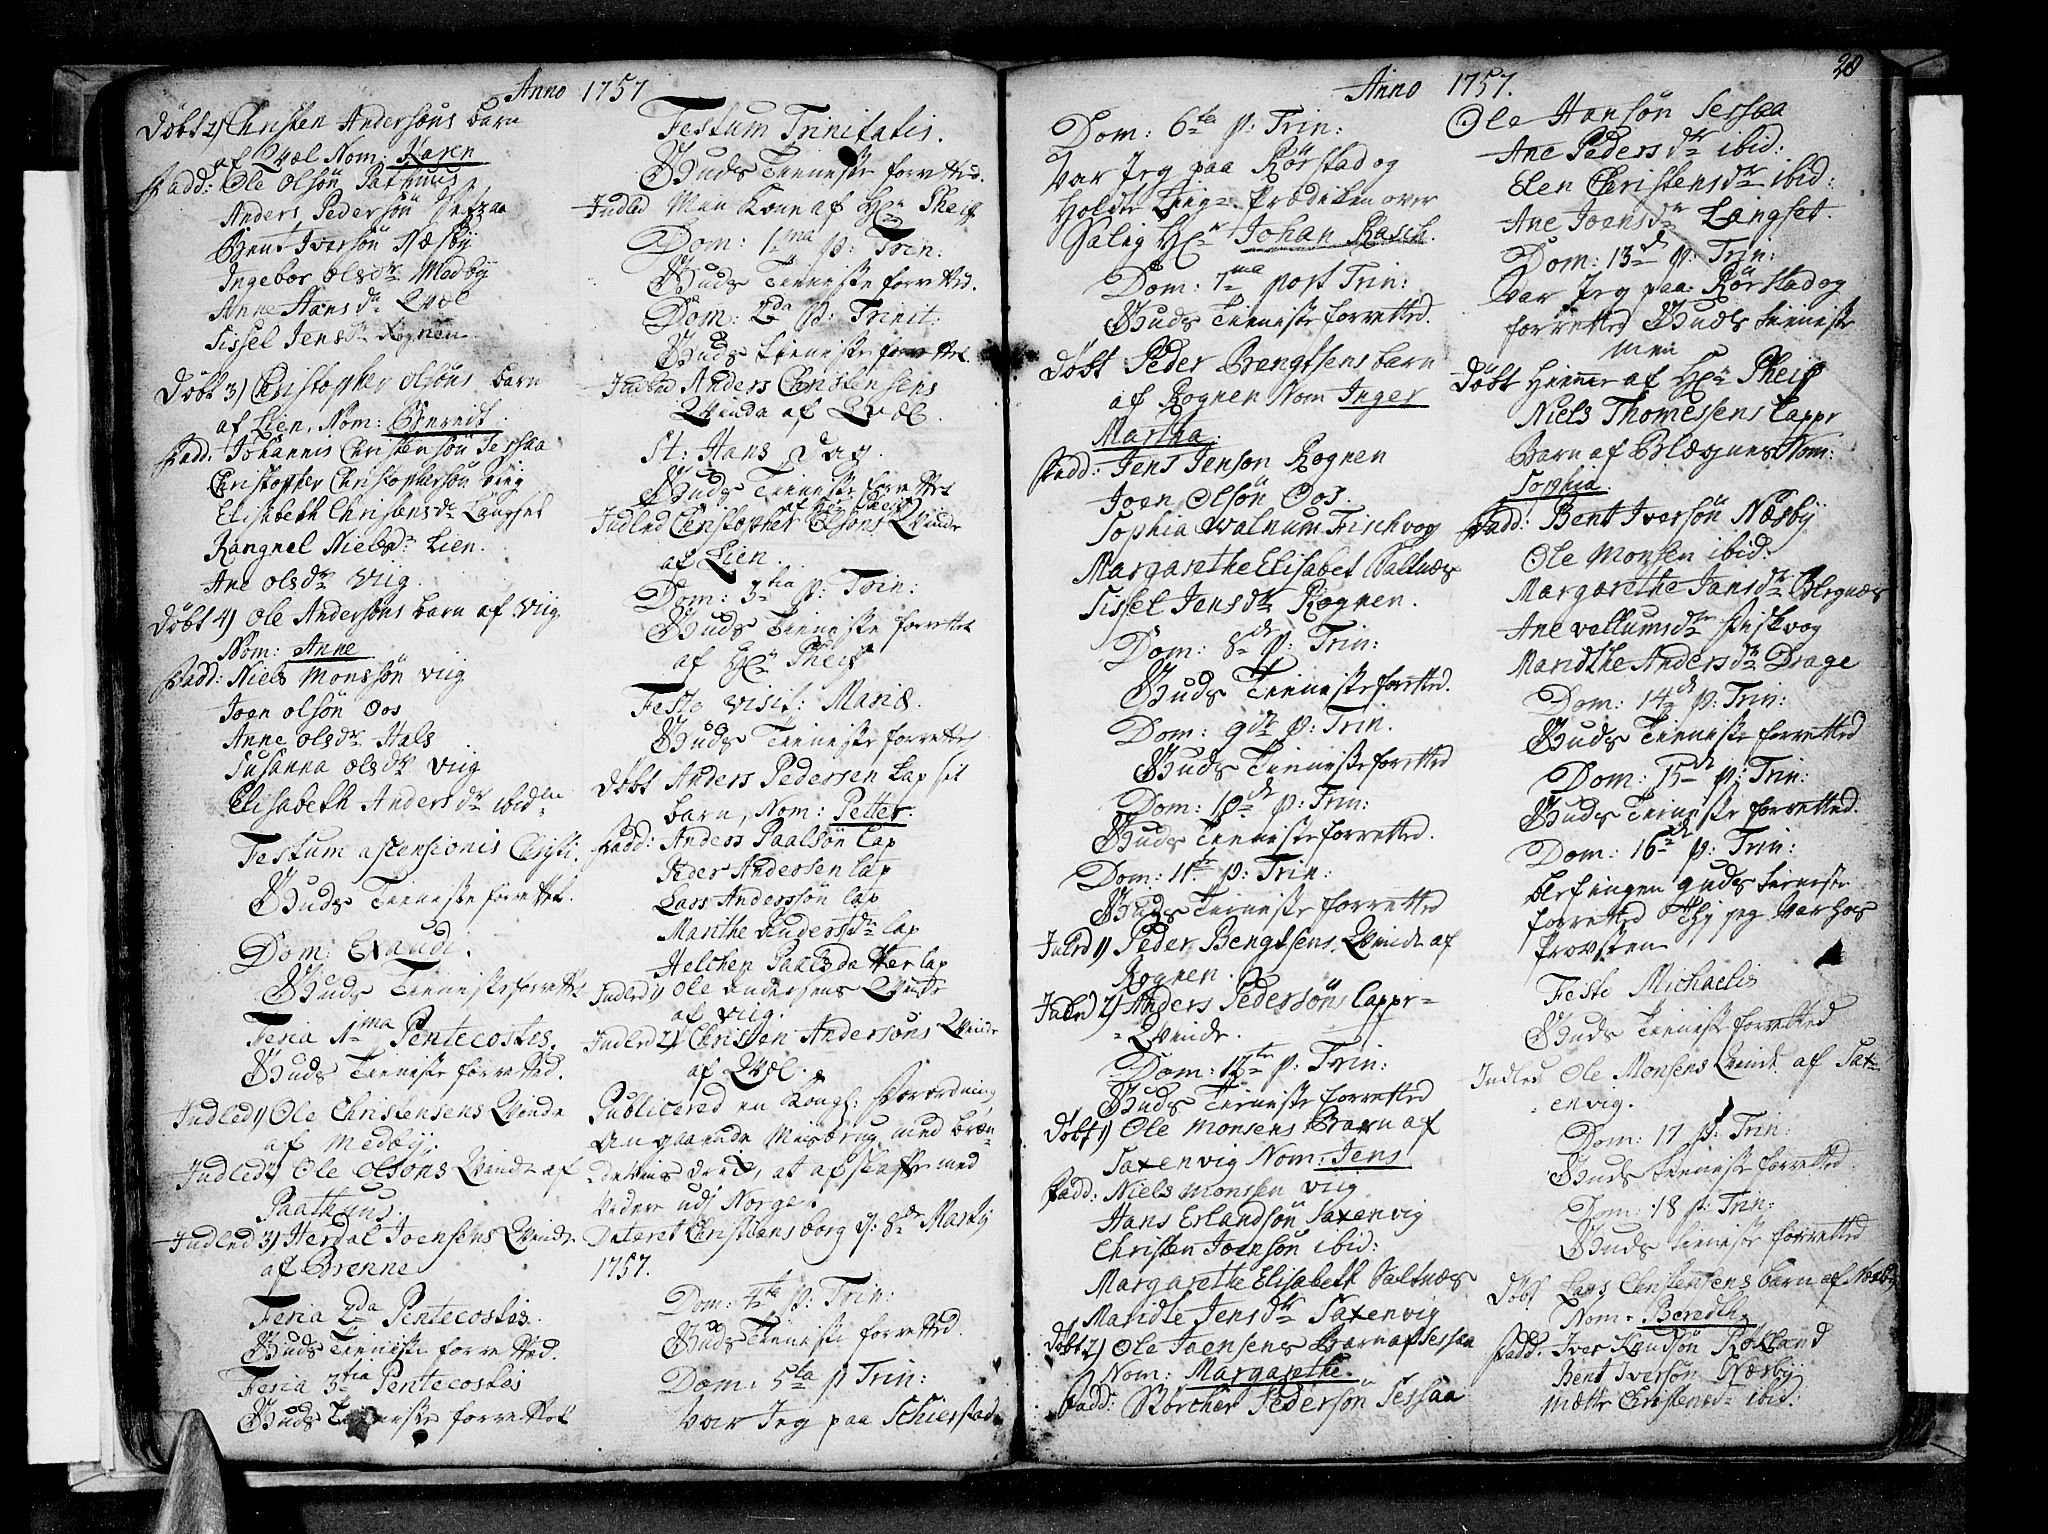 Anno 1757
Döbt 2) Christen Andersöns barn
af Qvæl Nom: Karen
Fadd: Ole Olsön Pathuus
Anders Pedersön
Bent Iversön Næsby
Ingebor Olsdr Medby
Anne Hansdr Qvæl
Sissel Jensdr Rognen
Döbt 3) Christopher Olsöns barn
af Lien, Nom: Berendt
Fadd: Johannis Christensön Sessaa
Christopher Christophersön Viig
Elisabeth Christensdr Langset
Rangnel Nielsdr Lien.
Ane Olsdr Viig.
Döbt 4) Ole Andersöns barn af Viig
Nom: Anne
Fadd: Niels Monssön Viig
Joen Olsön Oos
Anne Olsdr Hals
Susanna Olsdr Viig
Elisabeth Andersdr ibidem
Festum ascensionis Christi.
Guds Tienniste forrettet.
Dom: Exaudi.
Guds Tienniste forrettet
Feria 1ma Pentecostes.
Guds Tienniste forretted.
Indled 1) Ole Christensens Qvinde
af Medby.
Indled 2) Ole Olsöns Qvinde af
Paathuus.
Indled 3) Herdal Joensens Qvinde
af Brenne
Feria 2da Pentecostes.
Guds Tienniste forretted.
Feria 3tia Pentecostes
Guds Tienniste forrettet
Festum Trinitatis.
Guds Tienniste forretted.
Indled Men Kone af Hr Pheif
Dom: 1ma p: Trin:
Guds Tienniste forretted.
Dom: 2da p: Trinit:
Guds tienniste forrettet
Indled Anders Christensens
Qvinde af Qvæl.
St: Hans Dag.
Guds Tienniste forrettet
af Hr Pheif
Indled Christopher Olsöns Qvinde
af Lien.
Dom: 3tia p: Trin:
Guds Tienniste forrettet
af Hr Pheif
Festo Visit: Mariæ.
Guds Tienniste forrettet
Döbt Anders Pedersen Lap sit
barn, Nom: Petter.
Fadd: Anders Paalsön Lap
Peder Andersen Lap
Lars Anderssön Lap
Marithe Andersdr Lap
Helchen Paalsdatter Lap
Indled 1) Ole Andersens Qvinde
af Viig.
Indled 2) Christen Andersöns Qvinde
af Qvæl.
Publicered en Kongl: Forordning
Angaaende Misbrug med bræn-
med
Vedere udj Norge.
Dateret Christiansborg d: 8de Martj
1757.
Dom: 4ta p: Trin:
Guds Tienniste forretted.
Dom: 5ta p Trin:
Var Jeg paa Schierstad
Anno 1757.
20
Dom: 6ta p: Trin:
Var Jeg paa Rörstad og
Holdte Liig-Prædiken over
Salig Hr Johan Rasch.
Dom: 7ma post Trin:
Guds Tienniste forretted.
Döbt Peder Bengtsens barn
af Rognen Nom Inger
Martha.
Fadd: Jens Jenson Rognen
Joen Olsön Oos.
Sophia Walnum Fischvog
Margarethe Elisabet Saltnæs
Sissel Jensdr Rognen.
Dom: 8de p: Trin:
Guds Tienniste forretted.
Dom: 9de p: Trin.
Guds Tienniste forretted
Dom: 10de p: Trin:
Guds Tienniste forretted.
Dom: 11te p: Trin:
Guds Tienniste forretted
Indled 1) Peder Bengtsens Qvinde af
Rognen.
Indled 2) Anders Pedersöns Lappe-
-Qvinde.
Dom: 12te p: Trin:
Guds Tienniste forretted
Döbt 1) Ole Monsens Barn af
Saxenvig Nom: Jens
Fadd: Niels Monssen Viig
Hans Erlandsön Saxenvig
Christen Joensön ibid:
Margaretha Elisabeth Saltnæs
Maridte Jensdr Saxenvig
Döbt 2) Ole Joensens Barn af Sessaa
Nom: Margarethe.
Fadd: Börcher Pedersön Sessaa
Ole Hansön Sessaa
Ane Pedersdr ibid:
Elen Christensdr ibid:
Ane Joensdr Langset.
Dom: 13de p: Trin:
Var Jeg paa Rörstad og
forretted Guds tienniste
men
Döbt Hienne af Hr Pheif
Niels Thomessens Lappe
Barn af Nom:
Sophia.
Fadd: Bent Iversön Næsby
Ole Monsen ibid:
Margarethe Jansdr
Ane Vellumsdr Fiskvog
Maridthe Andersdr Drage
Dom: 14de p: Trin:
Guds Tienniste forretted
Dom: 15de p: Trin:
Guds Tienniste forretted.
Dom: 16de p: Trin:
Blef ingen guds tienniste
forretted Thj jeg var hos
Provsten
Festo Michaelis
Guds Tienniste forretted
Indled Ole Monsens Qvinde af Sax-
envig.
Dom: 17 p: Trin:
Guds tienniste forretted
Dom: 18 p: Trin:
Guds tienniste forretted
Döbt Lars Christensens barn af Næsby
Nom: Beredth
Fadd: Iver Knudsön Rokland
Bent Iversön Næsby
Mætte Christensdr ibid: